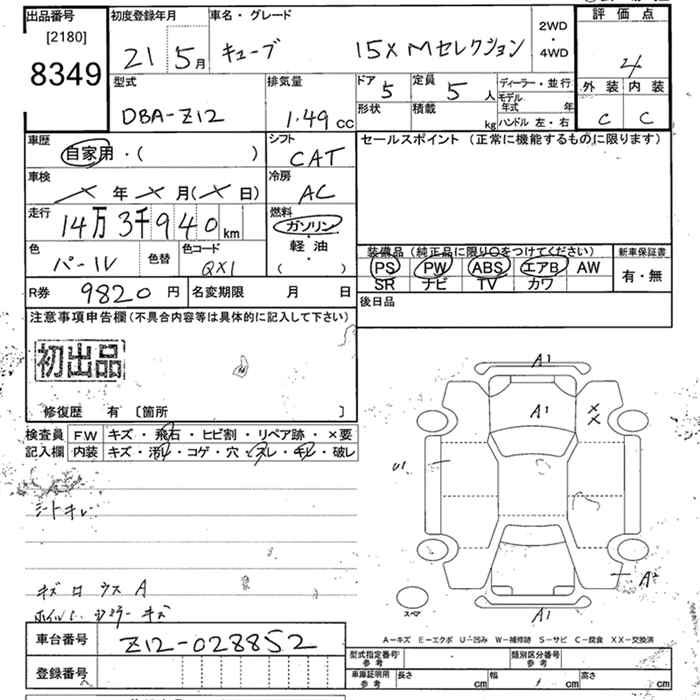 出品番号
[2180]
8349
初度登録年月
21 5月
車名・グレード
キューブ 15X Mセレクション
2WD
・
4WD
評価点
4
外装 内装
C C
型式
DBA-Z12
排気量
1.49 CC
ドア 5
定員 5人
形状
積載 kg
ディーラー・並行
モデル年式 年
ハンドル 左・右
車歴
自家用・( )
シフト
CAT
車検
年 月( 日)
冷房
AC
走行
14万3千940km
燃料
ガソリン
・
軽油
( )
色
パール
色替
色コード
QX1
セールスポイント (正常に機能するものに限ります)
装備品 (純正品に限り〇をつけてください)
PS PW ABS エアB AW
SR ナビ TV カワ
新車保証書
有・無
後日品
R券 9820円
名変期限 月 日
注意事項申告欄 (不具合内容等は具体的に記入して下さい)
初出品
修復歴 有 〔箇所 〕
検査員 記入欄
FW キズ・飛石・ヒビ割・リペア跡・×要
内装 キズ・汚レ・コゲ・穴・スレ・キレ・破レ
シートキレ
キズ ロウス A
キズ
A1
A1
X
X
U1
A1
スペア
A-キズ E-エクボ U-凹み W-補修跡 S-サビ C-腐食 XX-交換済
車台番号
Z12-028852
登録番号
型式指定番号 参考
類別区分番号 参考
車庫証明用 参考
長さ cm
幅 cm
高さ cm